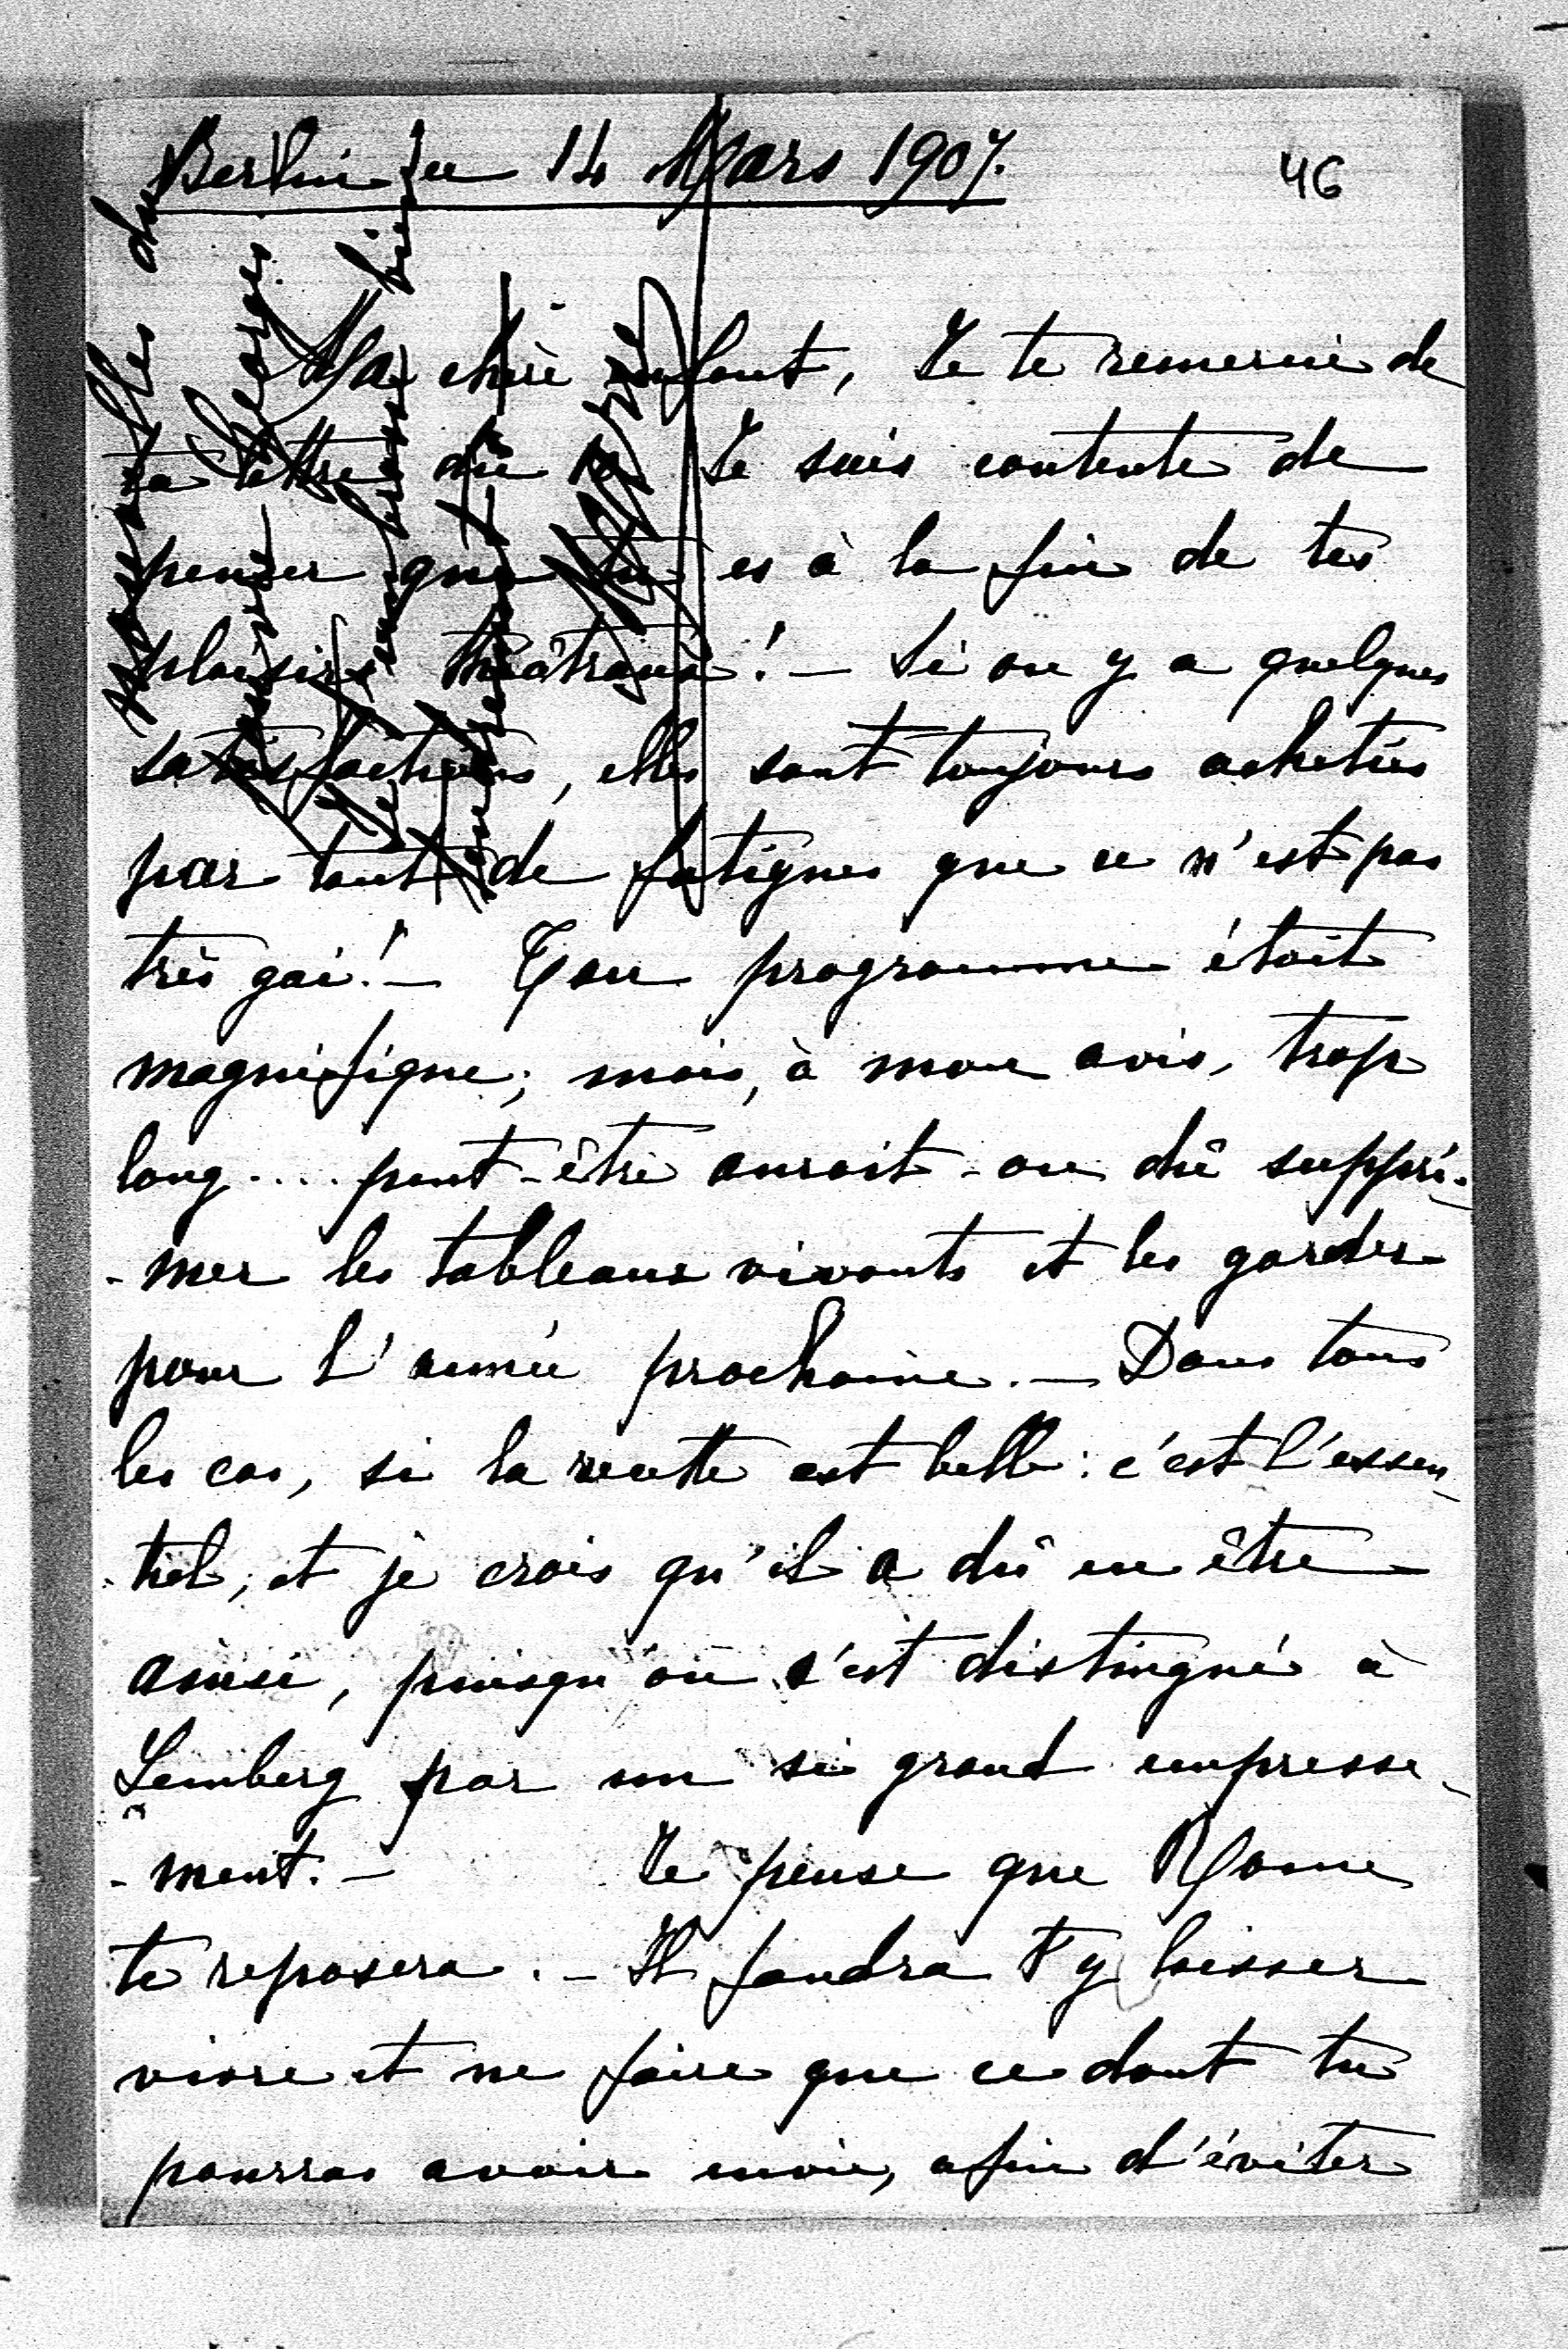 Berlin ce 14 Mars 1907.
46
Ma chère enfant, Je te remercie de
ta lettre du Je suis contente de
penser que tu es à la fin de tes
plaisirs théâtraux! — Si on y a quelques
satisfactions, elles sont toujours achetées
par tant de fatigues que ce n'est pas
très gai! — Ton programme était
magnifique; mais, à mon avis, trop
long.... peut-être aurait-on dû suppri-
-mer les tableaux vivants et les garder
pour l'année prochaine. — Dans tous
les cas, si la recette est belle: c'est l'essen-
-tiel; et je crois qu'il a dû en être
ainsi, puisqu'on s'est distingué à
Lemberg par un si grand empresse-
-ment. — Je pense que Rome
te reposera. — Il faudra t'y laisser
vivre et ne faire que ce dont tu
pourras avoir envie, afin d'éviter